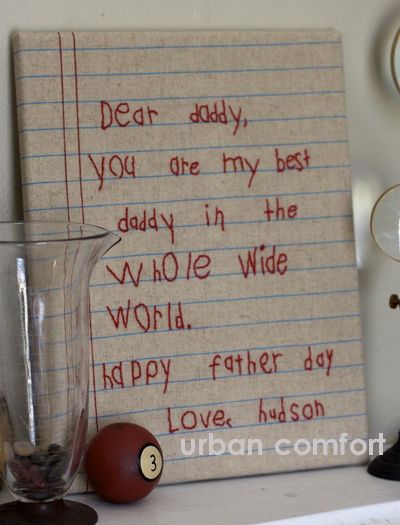 Dear daddy,
you are my best
daddy in the
whole wide
world.
happy father day
Love, hudson
urban comfort
3